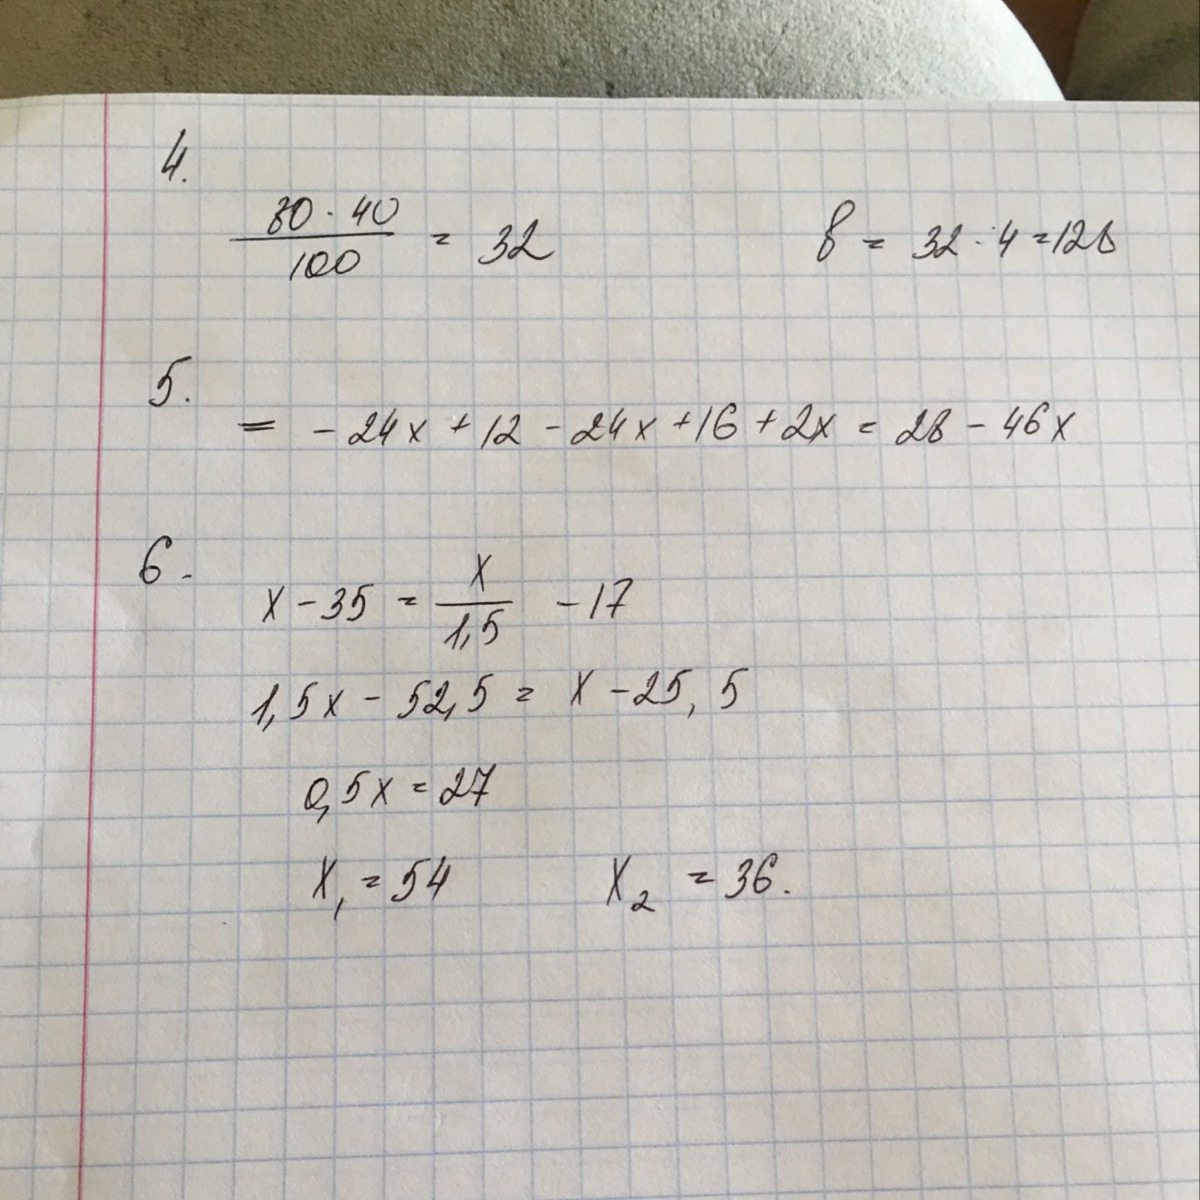 4.
80 · 40 / 100 = 32
8 = 32 · 4 = 128
5.
= - 24x + 12 - 24x + 16 + 2x = 28 - 46x
6.
x - 35 = x / 1,5 - 17
1,5x - 52,5 = x - 25,5
0,5x = 27
x₁ = 54 x₂ = 36.